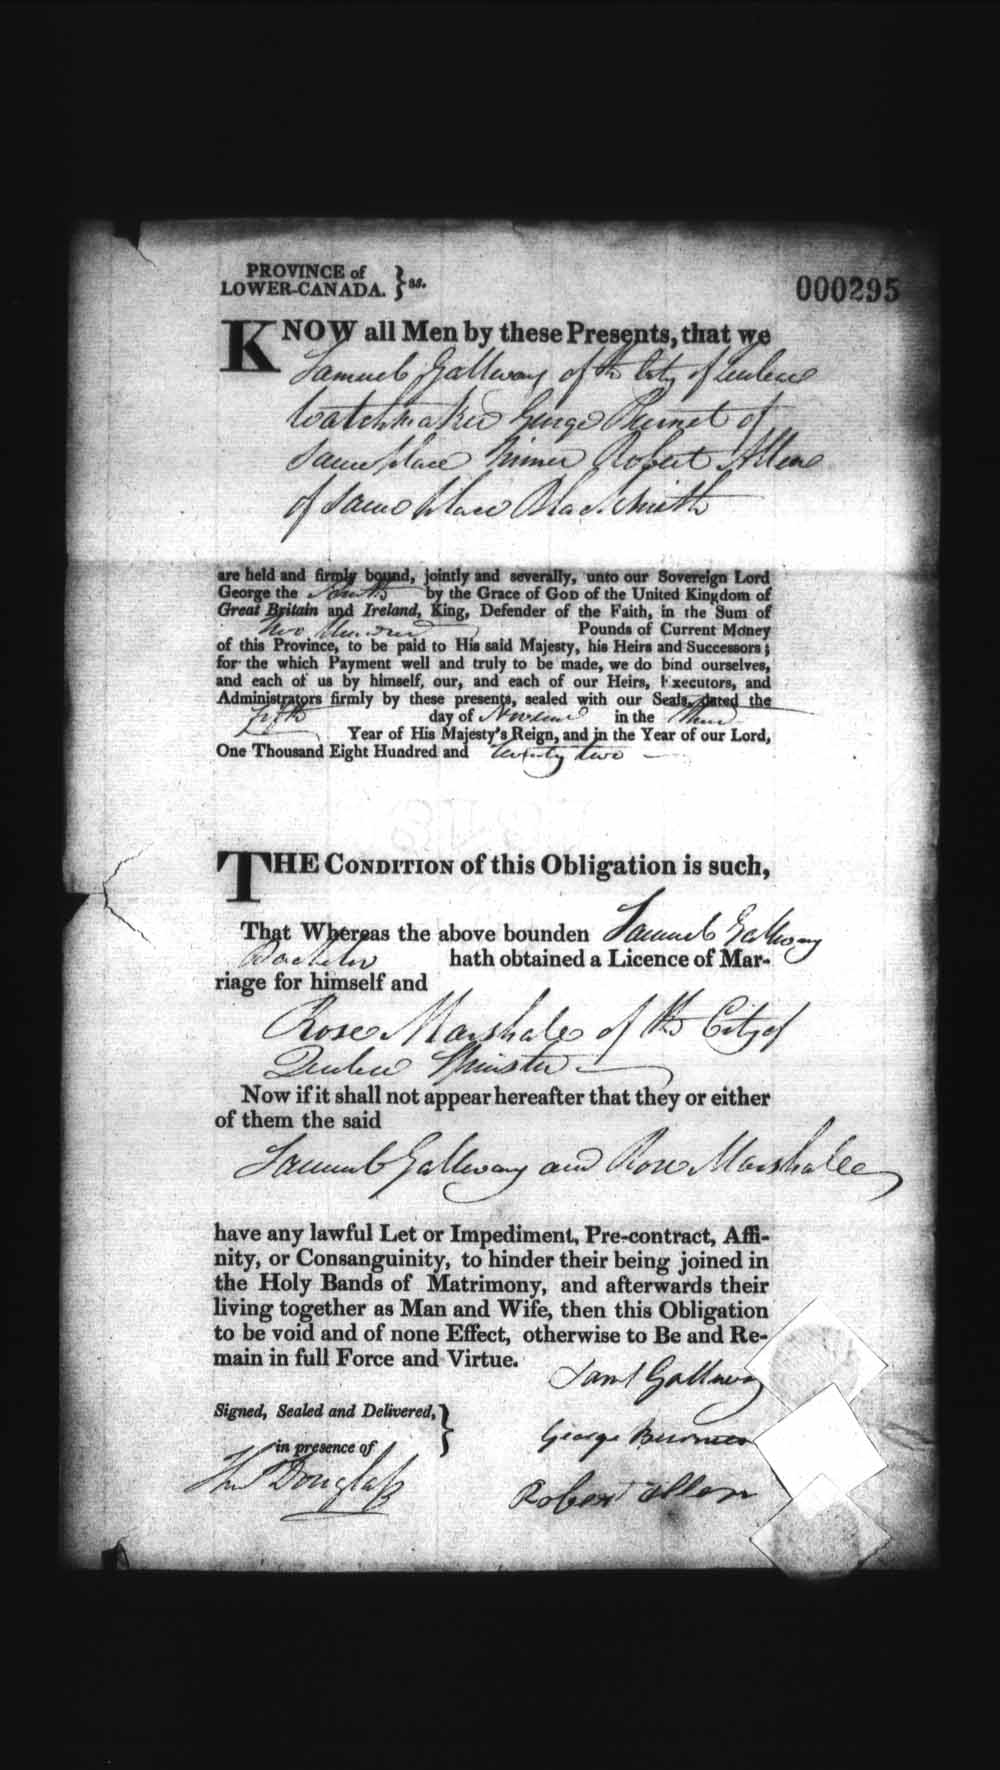 PROVINCE of
LOWER-CANADA. } ss.
000295
KNOW all Men by these Presents, that we
Samuel Gallway of the City of Quebec
Watchmaker George of
same place Robert Allen
of same place Blacksmith
are held and firmly bound, jointly and severally, unto our Sovereign Lord
George the fourth by the Grace of GOD of the United Kingdom of
Great Britain and Ireland, King, Defender of the Faith, in the Sum of
Two Hundred Pounds of Current Money
of this Province, to be paid to His said Majesty, his Heirs and Successors;
for the which Payment well and truly to be made, we do bind ourselves,
and each of us by himself, our, and each of our Heirs, Executors, and
Administrators firmly by these presents, sealed with our Seals, dated the
fifth day of November in the Third
Year of His Majesty's Reign, and in the Year of our Lord,
One Thousand Eight Hundred and twenty two
THE CONDITION of this Obligation is such,
That Whereas the above bounden Samuel Gallway
Bachelor hath obtained a Licence of Mar-
riage for himself and
Rose Marshall of the City of
Quebec Spinster
Now if it shall not appear hereafter that they or either
of them the said
Samuel Gallway and Rose Marshall
have any lawful Let or Impediment, Pre-contract, Affi-
nity, or Consanguinity, to hinder their being joined in
the Holy Bands of Matrimony, and afterwards their
living together as Man and Wife, then this Obligation
to be void and of none Effect, otherwise to Be and Re-
main in full Force and Virtue.
Saml Gallway
Signed, Sealed and Delivered, }
George
in presence of
Thos Douglass
Robert Allen